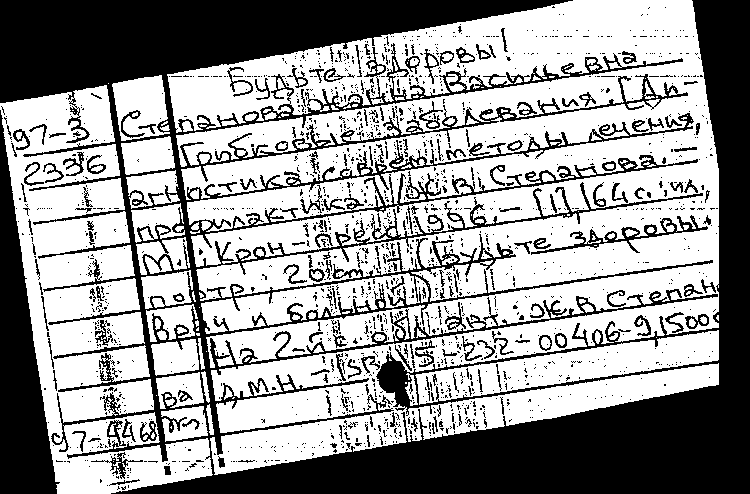 Будьте здоровы!
97-3 Степанова, Жанна Васильевна.
2336 Грибковые заболевания: [Ди-
агностика, соврем. методы лечения,
профилактика] / Ж.В. Степанова. -
М.: Крон-пресс, 1996. - [1], 164 с.: ил.,
портр.; 20 см. (Будьте здоровы.
Врач и больной).
На 2-й с. обл. авт.: Ж.В. Степано
ва д.м.н. - ISBN 5-232-00406-9, 1500
97-4468